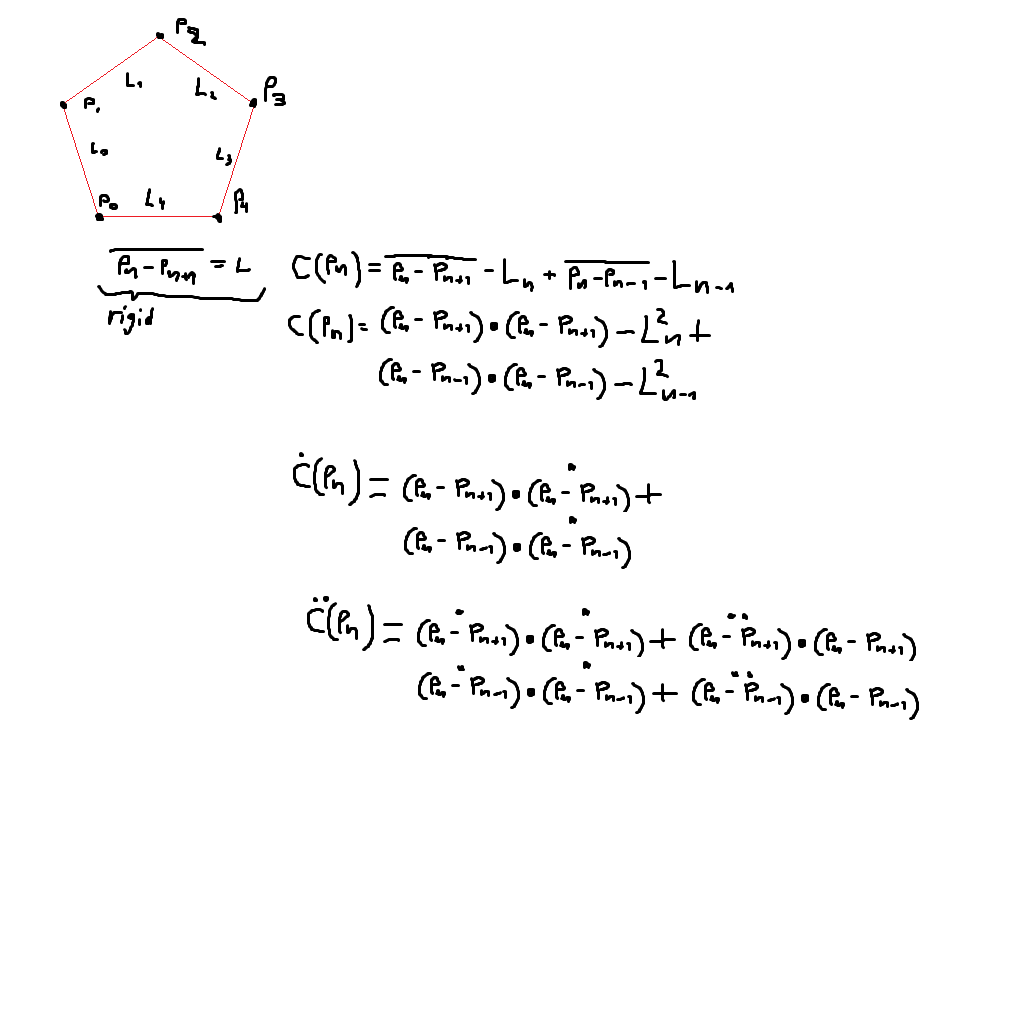 P2
L1
L2
P3
P1
L0
L3
P0
L4
P4
\overline{Pn - Pn+1} = L
rigid
C(Pn) = \overline{Pn - Pn+1} - Ln + \overline{Pn - Pn-1} - Ln-1
C(Pn) = (Pn - Pn+1) • (Pn - Pn+1) - L²n +
(Pn - Pn-1) • (Pn - Pn-1) - L²n-1
Ċ(Pn) = (Pn - Pn+1) • (Pn \dot{-} Pn+1) +
(Pn - Pn-1) • (Pn \dot{-} Pn-1)
C̈(Pn) = (Pn \dot{-} Pn+1) • (Pn \dot{-} Pn+1) + (Pn \ddot{-} Pn+1) • (Pn - Pn+1)
(Pn \dot{-} Pn-1) • (Pn \dot{-} Pn-1) + (Pn \ddot{-} Pn-1) • (Pn - Pn-1)